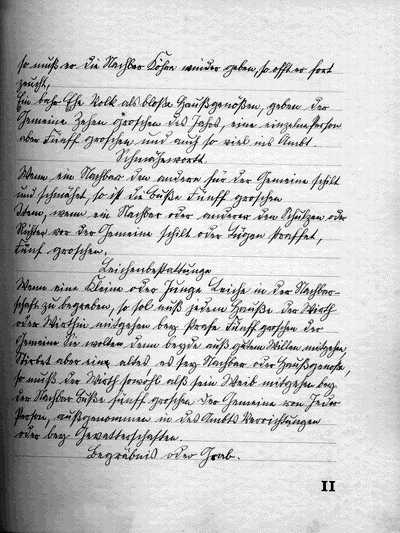 so muß er die Nachbar Köhre wieder geben, so offt er fort
zeucht,
Ein bahr Ehe Volk als bloße Haußgenoßen, geben der
Gemeine Zehen groschen des Jahrs, eine einzelne Person
aber Fünff groschen und auch so viel ins Ambt.
Schmähewortt
Wenn ein Nachbar den andern für der Gemeine schilt
und schmähet, so ist die Buße Fünff groschen
Item, wenn ein Nachbar oder anderer den Schulzen oder
Richter vor der Gemeine schilt oder Lügen straffet,
Fünf groschen.
Leichenbestattunge
Wenn eine Kleine oder Junge Leiche in der Nachbar-
schaft zu begraben, so sol auß jedem Hauße der Wirth
oder Wirthin mitgehen bey strafe Fünff groschen der
Gemeine Sie wolten denn beyde auß gutem Willen mitgehen,
Stirbet aber eine altes es sey Nachbar oder Haußgenoße,
so muß der Wirth sowohl alß sein Weib mitgehen bey
der Nachbar Buße fünff groschen der Gemeine von Jeder
Person, außgenommen in des Ambts Verrichtungen
oder bey Gevatterschaften.
Begräbnis oder Grab.
II